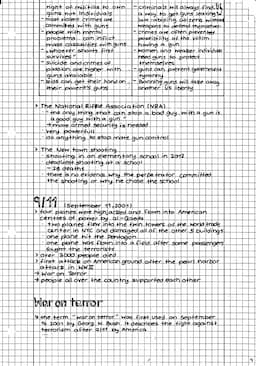 right of militia to own
guns not individuals
most violent crimes are
committed with guns
people with mental
problems can inflict
mass casualties with guns
"whoever shoots first
survives"
suicide and crimes of
passion are higher with
guns available
kids can get their hand on
their parent's guns
- criminals will always find
a way to get guns leaving
law abiding citizens without
weapons to defend themselves
- crimes are often prevented
possibility of the victim
having a gun
- women and weaker individuals
need guns to protect
themselves
- guns can prevent government
tyranny
- Banning guns will take away
another US liberty
> The National Rifle Association (NRA)
- "the only thing that can stop a bad guy with a gun is
a good guy with a gun"
→ more armed security is needed
- very powerful
- do anything to stop more gun control
> The New town shooting
- shooting in an elementary school in 2012
- deadliest shooting at a school
→ 26 deaths
- there is no evidence why the perpetrator committed
the shooting or why he chose the school
9/11 (September 11, 2001)
> four planes were highjacked and flown into American
centres of power by al-Qaeda
- two planes flew into the twin towers of the world trade
center in NYC and damaged all of the other 5 buildings
- one plane hit the Pentagon
- one plane was flown into a field after some passengers
fought the terrorists
> over 3000 people died
> first attack on American ground after the pearl harbor
attack in WWII
→ War on Terror
→ people all over the country supported each other
War on terror
> the term "war on terror" was first used on September
2001 by George W. Bush. It describes the fight against
terrorism after 9/11 by America